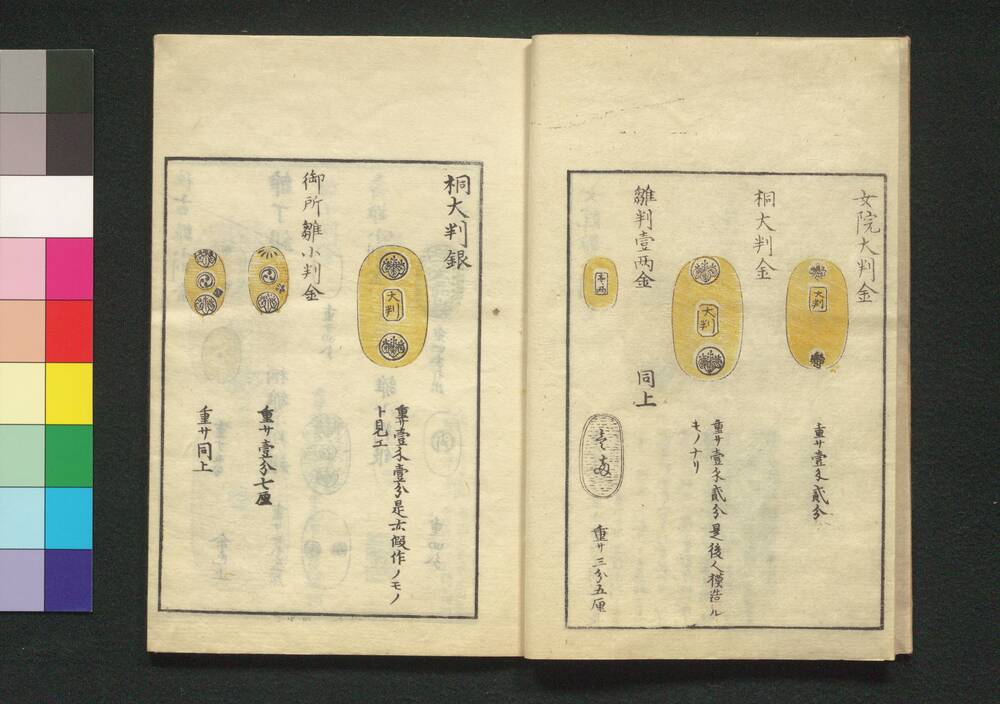 女院大判金
大判
重サ壹匁貳分
桐大判金
大判
重サ壹匁貳分是後人模造ル
モノナリ
雛判壹両金
壹両
同上
重サ三分五厘
桐大判銀
大判
重サ壹匁壹分是亦假作ノモノ
ト見エ
御所雛小判金
重サ壹分七厘
重サ同上